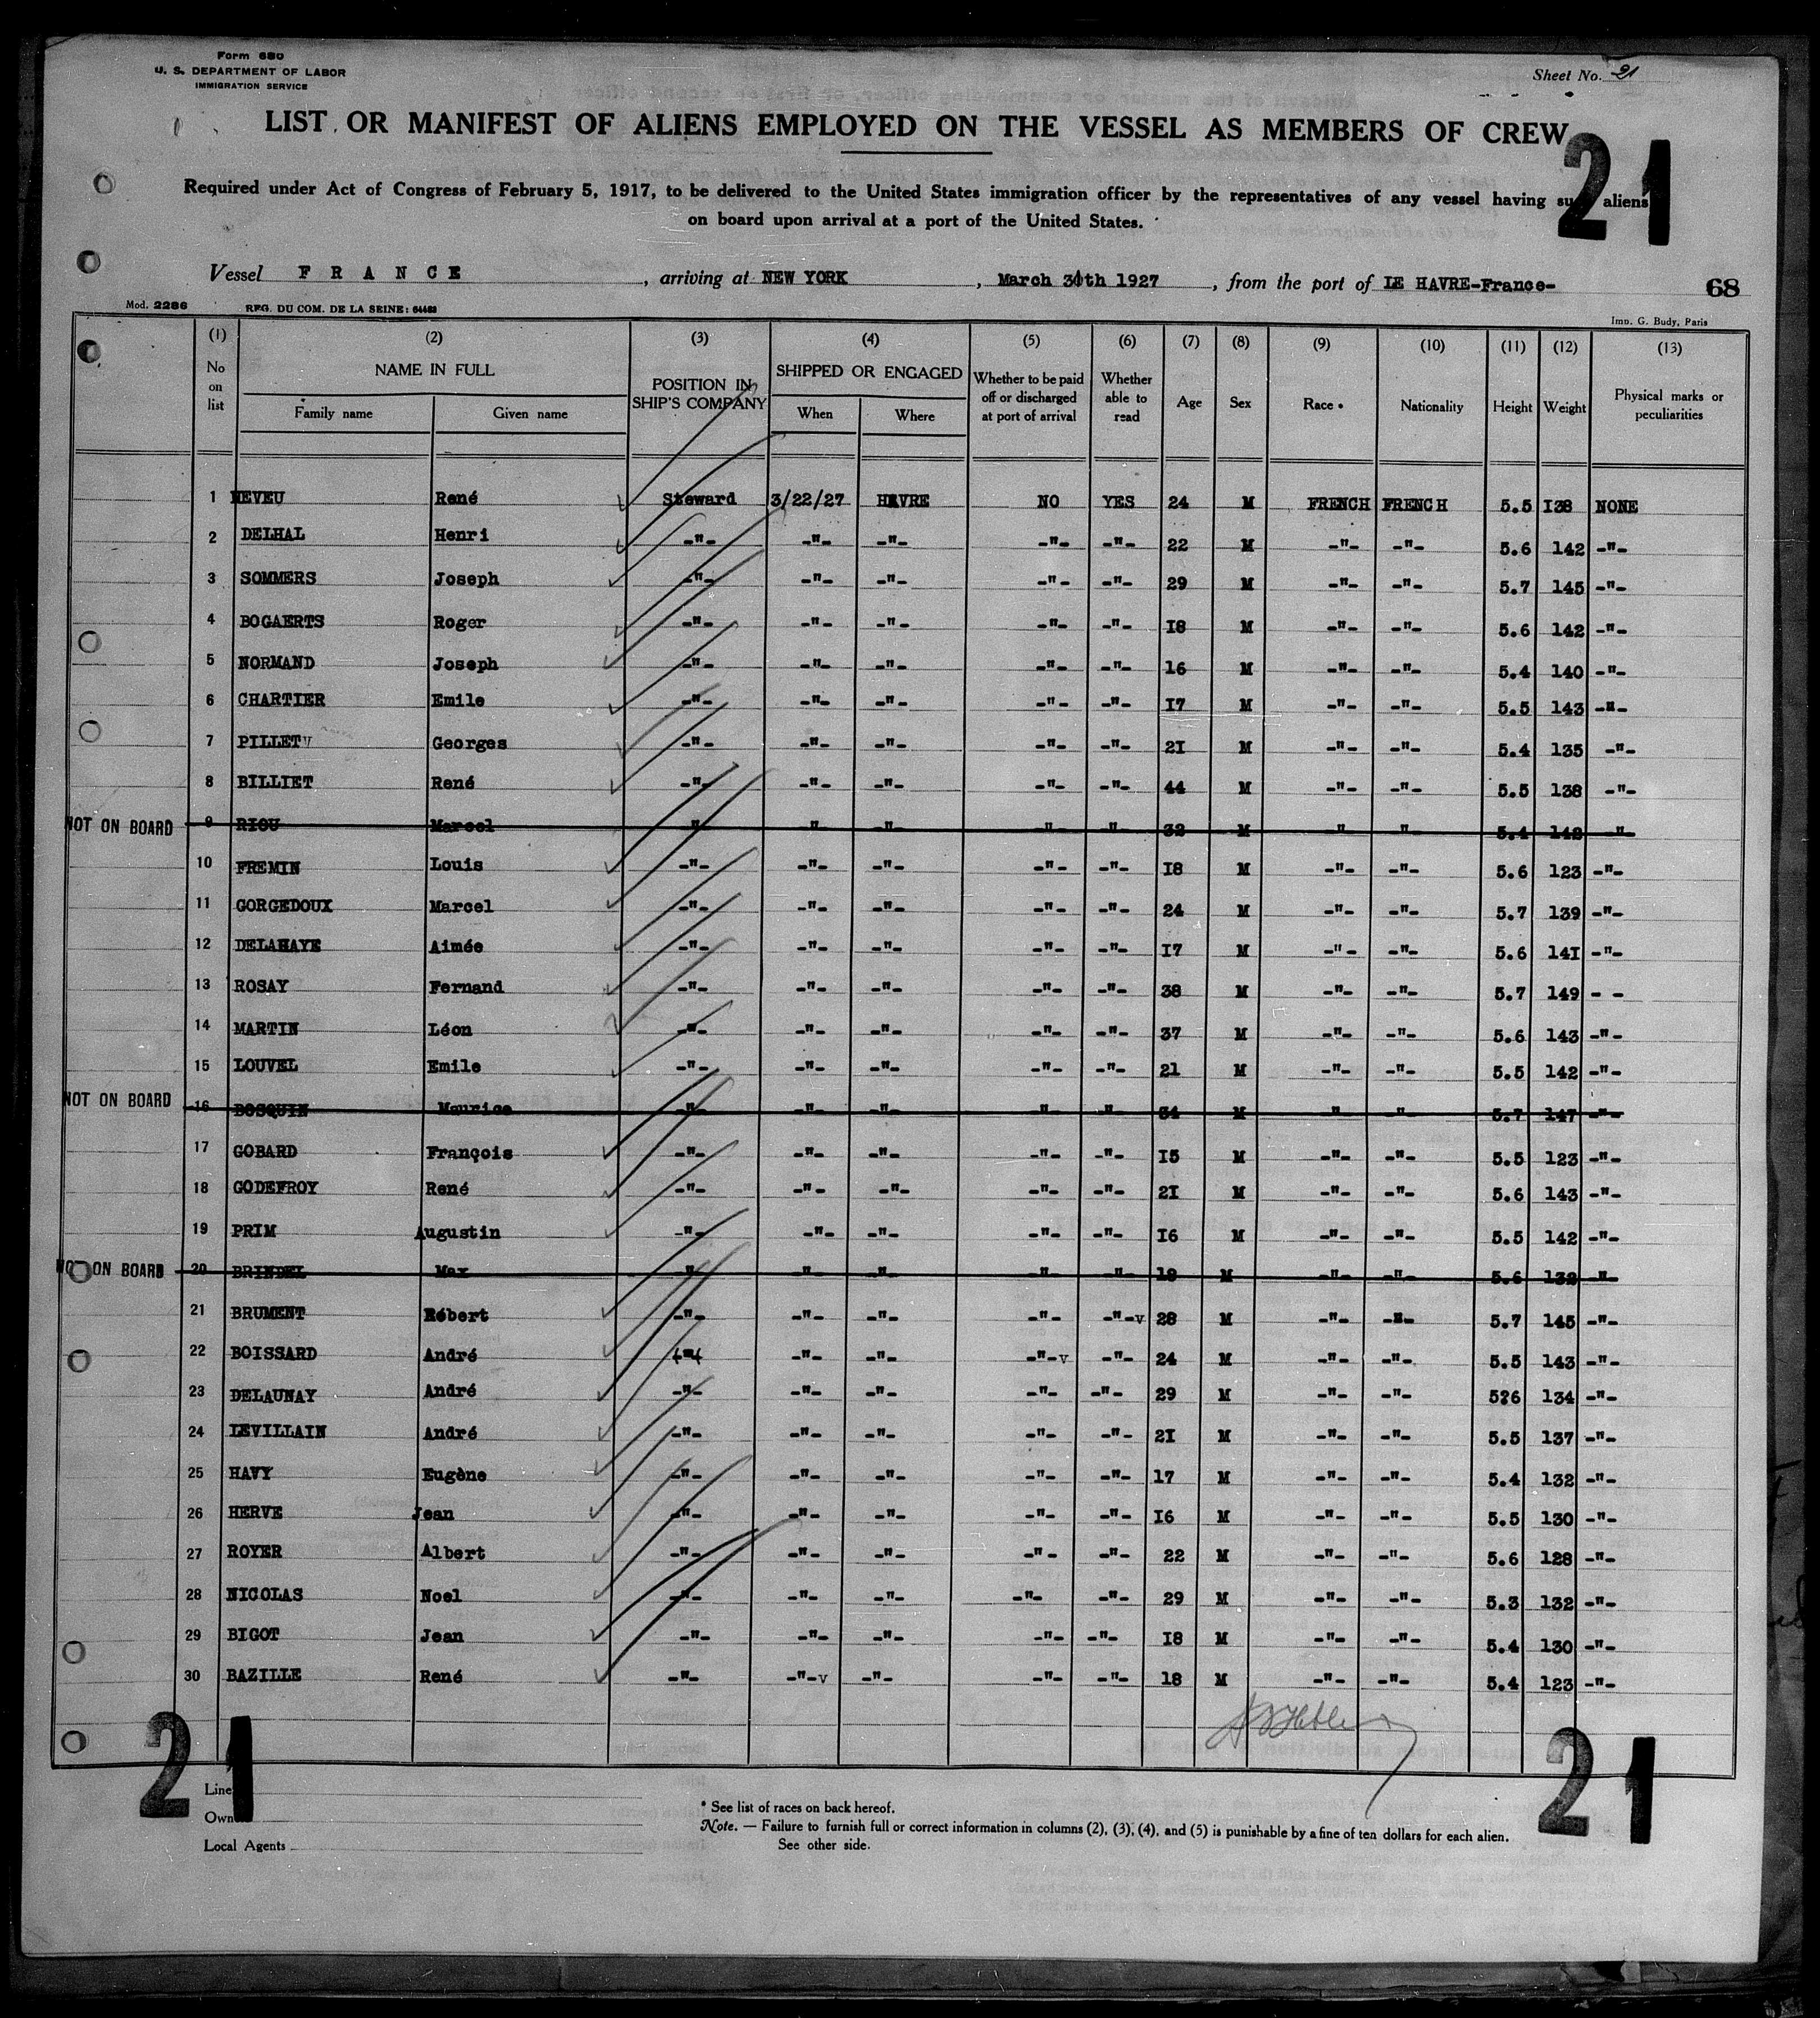 Form 680
U. S. DEPARTMENT OF LABOR
IMMIGRATION SERVICE
Sheet No. 21
LIST OR MANIFEST OF ALIENS EMPLOYED ON THE VESSEL AS MEMBERS OF CREW
21
Required under Act of Congress of February 5, 1917, to be delivered to the United States immigration officer by the representatives of any vessel having su aliens
on board upon arrival at a port of the United States.
Vessel F R A N C E , arriving at NEW YORK , March 30th 1927 , from the port of LE HAVRE-France- 68
Mod. 2286 REG. DU COM. DE LA SEINE: 64483 Imp. G. Budy, Paris
(1) (2) (3) (4) (5) (6) (7) (8) (9) (10) (11) (12) (13)
No on list NAME IN FULL Family name Given name POSITION IN SHIP'S COMPANY SHIPPED OR ENGAGED When Where Whether to be paid off or discharged at port of arrival Whether able to read Age Sex Race * Nationality Height Weight Physical marks or peculiarities
1 NEVEU René Steward 3/22/27 HAVRE NO YES 24 M FRENCH FRENCH 5.5 138 NONE
2 DELHAL Henri -"- -"- -"- -"- -"- 22 M -"- -"- 5.6 142 -"-
3 SOMMERS Joseph -"- -"- -"- -"- -"- 29 M -"- -"- 5.7 145 -"-
4 BOGAERTS Roger -"- -"- -"- -"- -"- 18 M -"- -"- 5.6 142 -"-
5 NORMAND Joseph -"- -"- -"- -"- -"- 16 M -"- -"- 5.4 140 -"-
6 CHARTIER Emile -"- -"- -"- -"- -"- 17 M -"- -"- 5.5 143 -"-
7 PILLET Georges -"- -"- -"- -"- -"- 21 M -"- -"- 5.4 135 -"-
8 BILLIET René -"- -"- -"- -"- -"- 44 M -"- -"- 5.5 138 -"-
NOT ON BOARD 9 RIOU Marcel -"- -"- -"- -"- -"- 32 M -"- -"- 5.4 142 -"-
10 FREMIN Louis -"- -"- -"- -"- -"- 18 M -"- -"- 5.6 123 -"-
11 GORGEDOUX Marcel -"- -"- -"- -"- -"- 24 M -"- -"- 5.7 139 -"-
12 DELAHAYE Aimée -"- -"- -"- -"- -"- 17 M -"- -"- 5.6 141 -"-
13 ROSAY Fernand -"- -"- -"- -"- -"- 38 M -"- -"- 5.7 149 - -
14 MARTIN Léon -"- -"- -"- -"- -"- 37 M -"- -"- 5.6 143 -"-
15 LOUVEL Emile -"- -"- -"- -"- -"- 21 M -"- -"- 5.5 142 -"-
NOT ON BOARD 16 BOSQUIN Maurice -"- -"- -"- -"- -"- 34 M -"- -"- 5.7 147 -"-
17 GOBARD François -"- -"- -"- -"- -"- 15 M -"- -"- 5.5 123 -"-
18 GODEFROY René -"- -"- -"- -"- -"- 21 M -"- -"- 5.6 143 -"-
19 PRIM Augustin -"- -"- -"- -"- -"- 16 M -"- -"- 5.5 142 -"-
NOT ON BOARD 20 BRINDEL Max -"- -"- -"- -"- -"- 18 M -"- -"- 5.6 132 -"-
21 BRUMENT Robert -"- -"- -"- -"- -"-v 28 M -"- -"- 5.7 145 -"-
22 BOISSARD André -"- -"- -"- -"-v -"- 24 M -"- -"- 5.5 143 -"-
23 DELAUNAY André -"- -"- -"- -"- -"- 29 M -"- -"- 5?6 134 -"-
24 LEVILLAIN André -"- -"- -"- -"- -"- 21 M -"- -"- 5.5 137 -"-
25 HAVY Eugène -"- -"- -"- -"- -"- 17 M -"- -"- 5.4 132 -"-
26 HERVE Jean -"- -"- -"- -"- -"- 16 M -"- -"- 5.5 130 -"-
27 ROYER Albert -"- -"- -"- -"- -"- 22 M -"- -"- 5.6 128 -"-
28 NICOLAS Noel -"- -"- -"- -"- -"- 29 M -"- -"- 5.3 132 -"-
29 BIGOT Jean -"- -"- -"- -"- -"- 18 M -"- -"- 5.4 130 -"-
30 BAZILLE René -"- -"-v -"- -"- -"- 18 M -"- -"- 5.4 123 -"-
21 21
Line
Own
Local Agents
* See list of races on back hereof.
Note. — Failure to furnish full or correct information in columns (2), (3), (4), and (5) is punishable by a fine of ten dollars for each alien.
See other side.